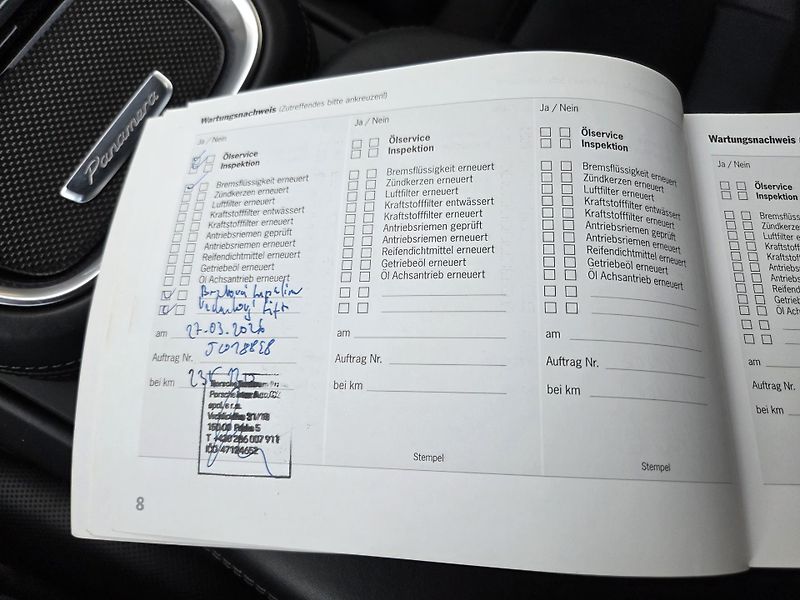 Panamera
Wartungsnachweis (Zutreffendes bitte ankreuzen!)
Ja / Nein
Ölservice
Inspektion
Bremsflüssigkeit erneuert
Zündkerzen erneuert
Luftfilter erneuert
Kraftstofffilter entwässert
Kraftstofffilter erneuert
Antriebsriemen geprüft
Antriebsriemen erneuert
Reifendichtmittel erneuert
Getriebeöl erneuert
Öl Achsantrieb erneuert
am 27.03.2026
Auftrag Nr.
bei km
150 00 Praha 5
T +420 286 007 911
IČO 47124652
8
Ja / Nein
Ölservice
Inspektion
Bremsflüssigkeit erneuert
Zündkerzen erneuert
Luftfilter erneuert
Kraftstofffilter entwässert
Kraftstofffilter erneuert
Antriebsriemen geprüft
Antriebsriemen erneuert
Reifendichtmittel erneuert
Getriebeöl erneuert
Öl Achsantrieb erneuert
am
Auftrag Nr.
bei km
Stempel
Ja / Nein
Ölservice
Inspektion
Bremsflüssigkeit erneuert
Zündkerzen erneuert
Luftfilter erneuert
Kraftstofffilter entwässert
Kraftstofffilter erneuert
Antriebsriemen geprüft
Antriebsriemen erneuert
Reifendichtmittel erneuert
Getriebeöl erneuert
Öl Achsantrieb erneuert
am
Auftrag Nr.
bei km
Stempel
Wartungsnachweis
Ja / Nein
Ölservice
Inspektion
am
Auftrag Nr.
bei km